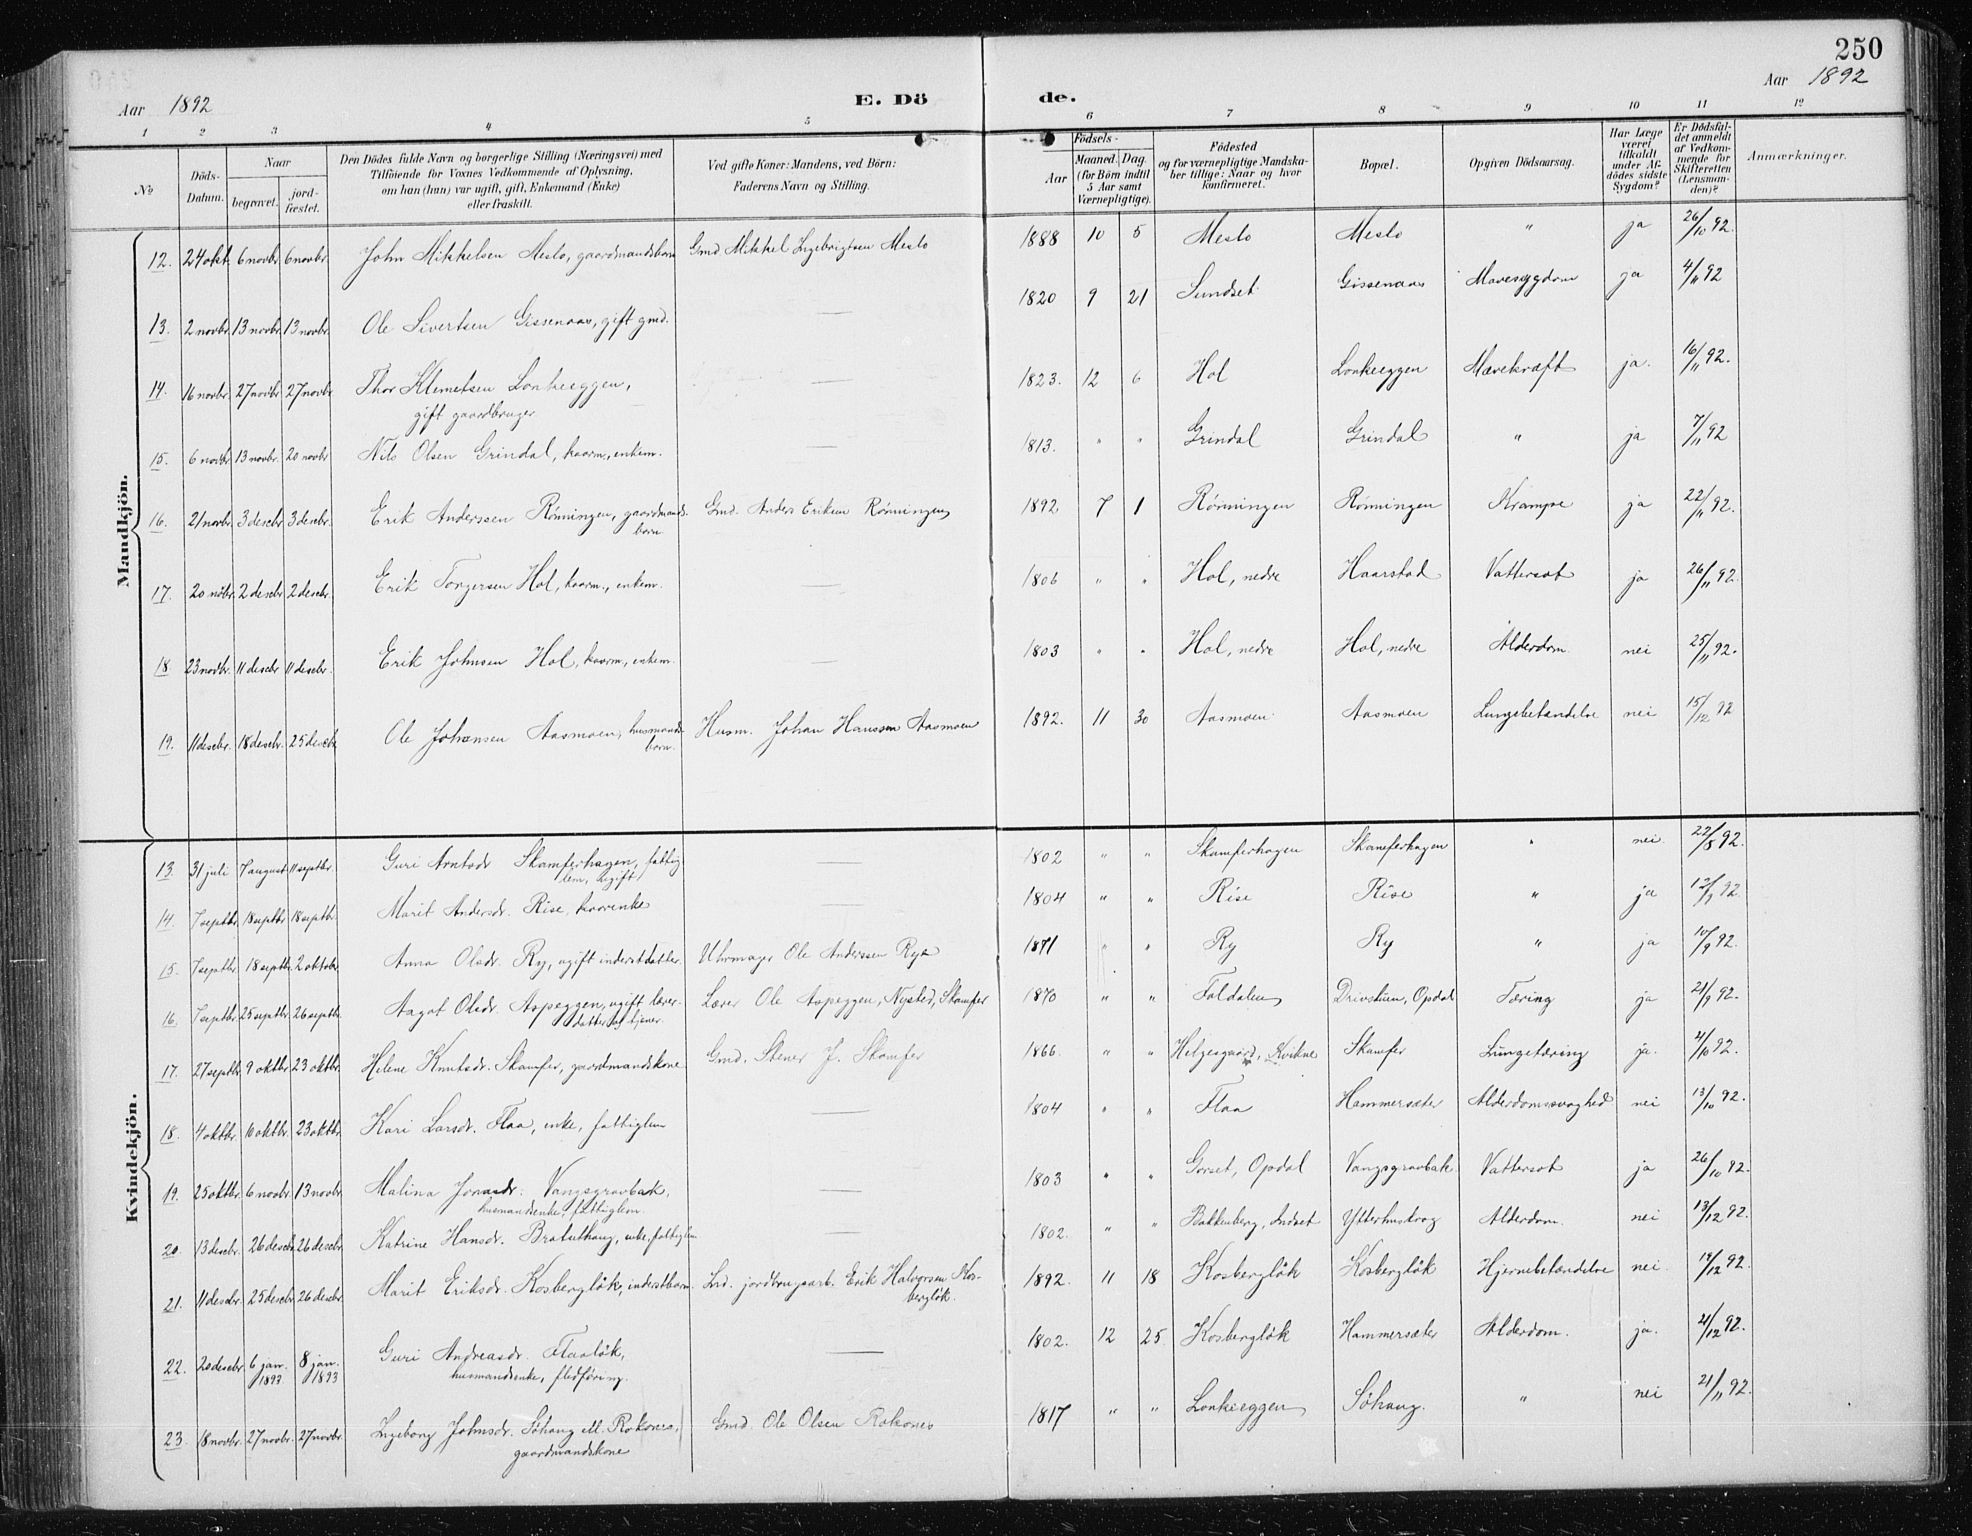 250
Aar 1892 E. Dö de. Aar 1892
1 2 3 4 5 6 7 8 9 10 11 12
No
Döds-Datum.
Naar
begravet.
jord-fæstet.
Den Dödes fulde Navn og borgerlige Stilling (Næringsvei) med
Tilföiende for Voxnes Vedkommende af Oplysning,
om han (hun) var ugift, gift, Enkemand (Enke)
eller fraskilt.
Ved gifte Koner: Mandens, ved Börn:
Faderens Navn og Stilling.
Födsels-
Aar
Maaned. Dag.
(for Børn indtil
5 Aar samt
Værnepligtige).
Födested
og for værnepligtige Mandska-
ber tillige: Naar og hvor
konfirmeret.
Bopæl.
Opgiven Dödsaarsag.
Har Læge
været
tilkaldt
under Af-
dödes sidste
Sygdom?
Er Dödsfal-
det anmeldt
af Vedkom-
mende for
Skifteretten
(Lensman-
den)?
Anmærkninger.
Mandkjön.
12. 24 okt. 6 novbr. 6 novbr. John Mikkelsen Meslo, gaardmandsbarn Gmd Mikkel Ingebrigtsen Meslo 1888 10 5 Meslo Meslo " ja 26/10 92.
13. 2 novbr. 13 novbr. 13 novbr. Ole Sivertsen Gissenaas, gift gmd. — 1820 9 21 Sundset Gissenaas Mavesygdom ja 4/11 92
14. 16 novbr. 27 novbr. 27 novbr. Thor Klemetsen Lonkeeggen, — 1823. 12 6 Hol Lonkeeggen Mavekræft ja. 16/11 92.
gift gaardbruger
15. 6 novbr. 13 novbr. 20 novbr. Nils Olsen Grindal, kaarm., enkem. — 1813. " " Grindal Grindal " ja 7/11 92
16. 21 novbr. 3 desebr. 3 desebr. Erik Anderssen Rønningen, gaardmands- Gmd. Anders Eriksen Rønningen 1892 7 1 Rønningen Rønningen Krampe ja 22/11 92.
barn
17. 20 nvbr. 2 desebr 2 desebr. Erik Torgersen Hol, kaarm., enkem. — 1806 " " Hol, nedre Haarstad Vattersot ja 26/11 92.
18 23 novbr. 11 desebr 11 desebr. Erik Johnsen Hol, kaarm., enkem. — 1803 " " Hol, nedre Hol, nedre Alderdom. nei 25/11 92.
19. 11 desebr. 18 desebr. 25 desebr Ole Johansen Aasmoen, husmands- Husm. Johan Hanssen Aasmoen 1892. 11 30 Aasmoen Aasmoen Lungebetændelse nei 15/12 92
barn.
Kvindekjön.
13. 31 juli 7 august 11 septbr. Guri Arntsdr. Skamferhagen, fattig — 1802 " " Skamferhagen Skamferhagen " nei 22/8 92.
lem, ugift
14. 7 septbr. 18 septbr 18 septbr. Marit Andersdr. Rise, kaarenke — 1804 " " Rise Rise " ja 12/9 92.
15. 7 septbr. 18 septbr. 2 oktobr. Anna Olsdr. Ry, ugift inderstdatter. Uhrmager Ole Anderssen Rye 1871 " " Ry Ry " ja 10/9 92.
16. 7 septbr. 25 septbr. 26 septbr. Aagot Olsdr. Aspeggen, ugift lærer- Lærer Ole Aspeggen, Nysted, Skamfer 1870 " " Foldalen Drivstuen, Opdal Tæring ja 21/9 92.
datter og tjener.
17. 27 septbr. 9 oktbr. 23 oktbr. Helene Knutsdr. Skamfer, gaardmandskone Gmd. Stener J. Skamfer 1866. " " Helgesgaard, Kvikne Skamfer Lungetæring ja. 4/10 92.
18. 4 oktbr. 16 oktbr. 23 oktbr. Kari Larsdr. Flaa, enke, fattiglem 1804 " " Flaa Hammersæter Alderdomssvaghed nei 13/10 92.
19. 25 oktbr. 6 novbr. 13 novbr. Malina Jonasdr. Vangsgravbak, — 1803 " " Gorset, Opdal Vangsgravbak Vattersot ja 26/10 92.
husmandsenke, fattiglem.
20. 13 desebr. 26 desebr. 26 desebr. Katrine Hansdr. Bratuthaug, enke, fattiglem — 1802. " " Bakkenberg, Indset Ytterhustrøg Alderdom. nei 13/12 92.
21. 11 desebr. 25 desebr. 26 desebr. Marit Eriksdr. Kosbergløk, inderstbarn. Ind. jordbrugsarb. Erik Halvorsen Kos- 1892. 11 18 Kosbergløk Kosbergløk Hjernebetændelse nei 14/12 92.
bergløk.
22. 20 desebr. 6 jan. 1893 8 jan. 1893 Guri Andreasdr. Flaaløk, — 1802. 12 25 Kosbergløk Hammersæter Alderdom. ja. 21/12 92.
husmandsenke, fledføring.
23. 18 novbr. 27 novbr. 27 novbr. Ingeborg Johnsdr. Söhaug ell. Rokones, Gmd. Ole Olsen Rokones 1817 " " Lonkeeggen Söhaug. " nei 21/11 92.
gaardmandskone